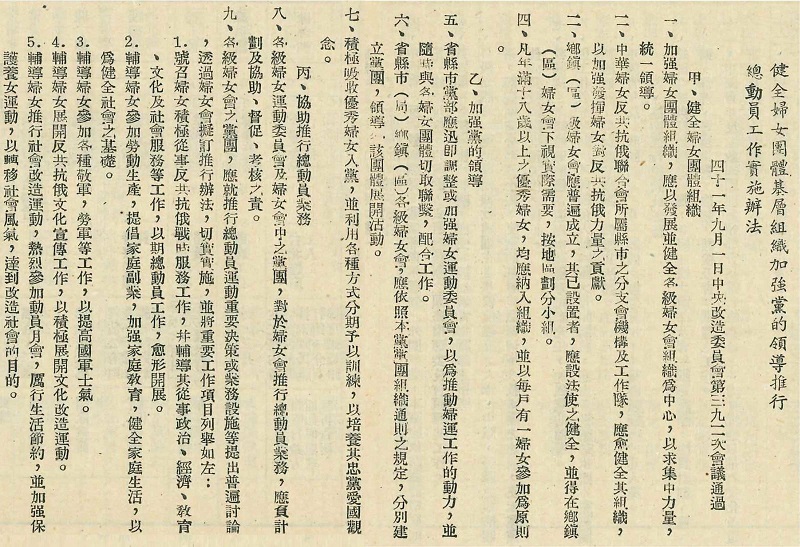 健全婦女團體基層組織加強黨的領導推行
總動員工作實施辦法
四十一年九月一日中央改造委員會第三九二次會議通過
甲、健全婦女團體組織
一、加強婦女團體組織，應以發展並健全各級婦女會組織為中心，以求集中力量，
統一領導。
二、中華婦女反共抗俄聯合會所屬縣市之分支會機構及工作隊，應愈健全其組織，
以加強發揮婦女對反共抗俄力量之貢獻。
三、鄉鎮（區）級婦女會應普遍成立，其已設置者，應設法使之健全，並得在鄉鎮
（區）婦女會下視實際需要，按地區劃分小組。
四、凡年滿十八歲以上之優秀婦女，均應納入組織，並以每戶有一婦女參加為原則
。
乙、加強黨的領導
五、省縣市黨部應迅即調整或加強婦女運動委員會，以為推動婦運工作的動力，並
隨時與各婦女團體切取聯繫，配合工作。
六、省縣市（局）鄉鎮（區）各級婦女會，應依照本黨黨團組織通則之規定，分別建
立黨團，領導該團體展開活動。
七、積極吸收優秀婦女入黨，並利用各種方式分期予以訓練，以培養其忠黨愛國觀
念。
丙、協助推行總動員業務
八、各級婦女運動委員會及婦女會中之黨團，對於婦女會推行總動員業務，應負計
劃及協助、督促、考核之責。
九、各級婦女會之黨團，應就推行總動員運動重要決策或業務設施等提出普遍討論
，透過婦女會擬訂推行辦法，切實實施，並將重要工作項目列舉如左：
1.號召婦女積極從事反共抗俄戰時服務工作，并輔導其從事政治、經濟、教育
、文化及社會服務等工作，以期總動員工作，愈形開展。
2.輔導婦女參加勞動生產，提倡家庭副業，加強家庭教育，健全家庭生活，以
為健全社會之基礎。
3.輔導婦女參加各種敬軍，勞軍等工作，以提高國軍士氣。
4.輔導婦女展開反共抗俄文化宣傳工作，以積極展開文化改造運動。
5.輔導婦女推行社會改造運動，熱烈參加動員月會，厲行生活節約，並加強保
護養女運動，以轉移社會風氣，達到改造社會的目的。